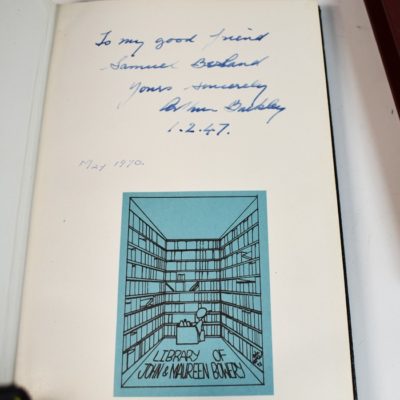 To my good friend
Samuel
Yours sincerely
1.2.47.
May 1970.
LIBRARY OF
JOHN & MAUREEN BOWERY